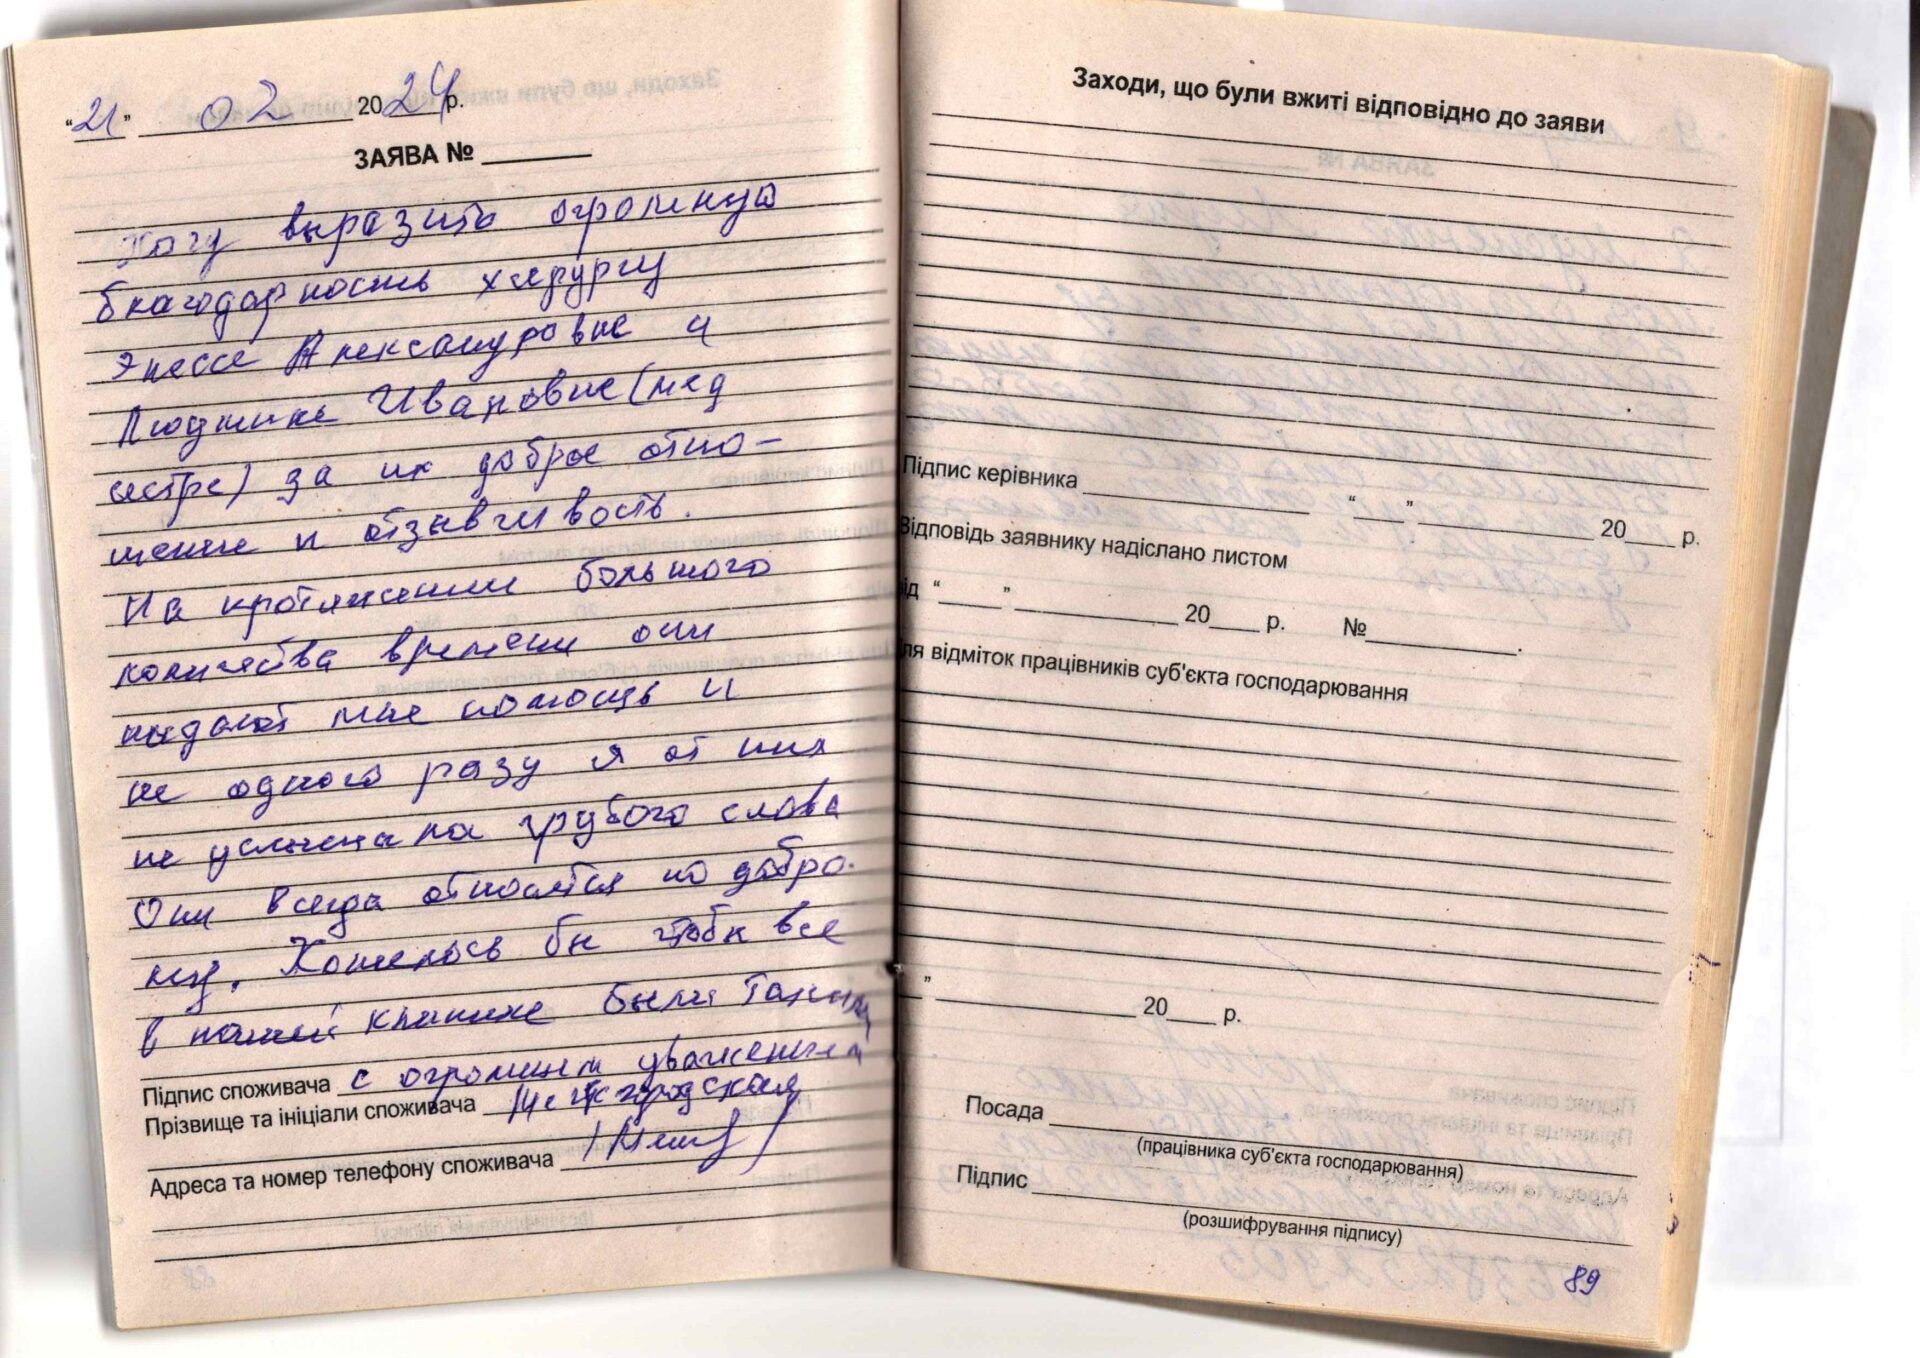 "21" 02 2024 р.
ЗАЯВА № ______
Хочу выразить огромную
благодарность хирургу
Энессе Александровне и
Людмиле Ивановне (мед
сестре) за их доброе отно-
шение и отзывчивость.
На протяжении большого
количества времени они
мне помощь и
не одного разу я от них
не услышала грубого слова
Они всегда относятся по добро-
му. Хотелось бы чтобы все
в нашей клинике были такими
Підпис споживача с огромным уважением
Прізвище та ініціали споживача
Адреса та номер телефону споживача
Заходи, що були вжиті відповідно до заяви
Підпис керівника ______ "____" ______ 20____ р.
Відповідь заявнику надіслано листом
від "_____" ______ 20____ р. №______.
ля відміток працівників суб'єкта господарювання
" ______ 20____ р.
Посада ______
(працівника суб'єкта господарювання)
Підпис ______
(розшифрування підпису)
89